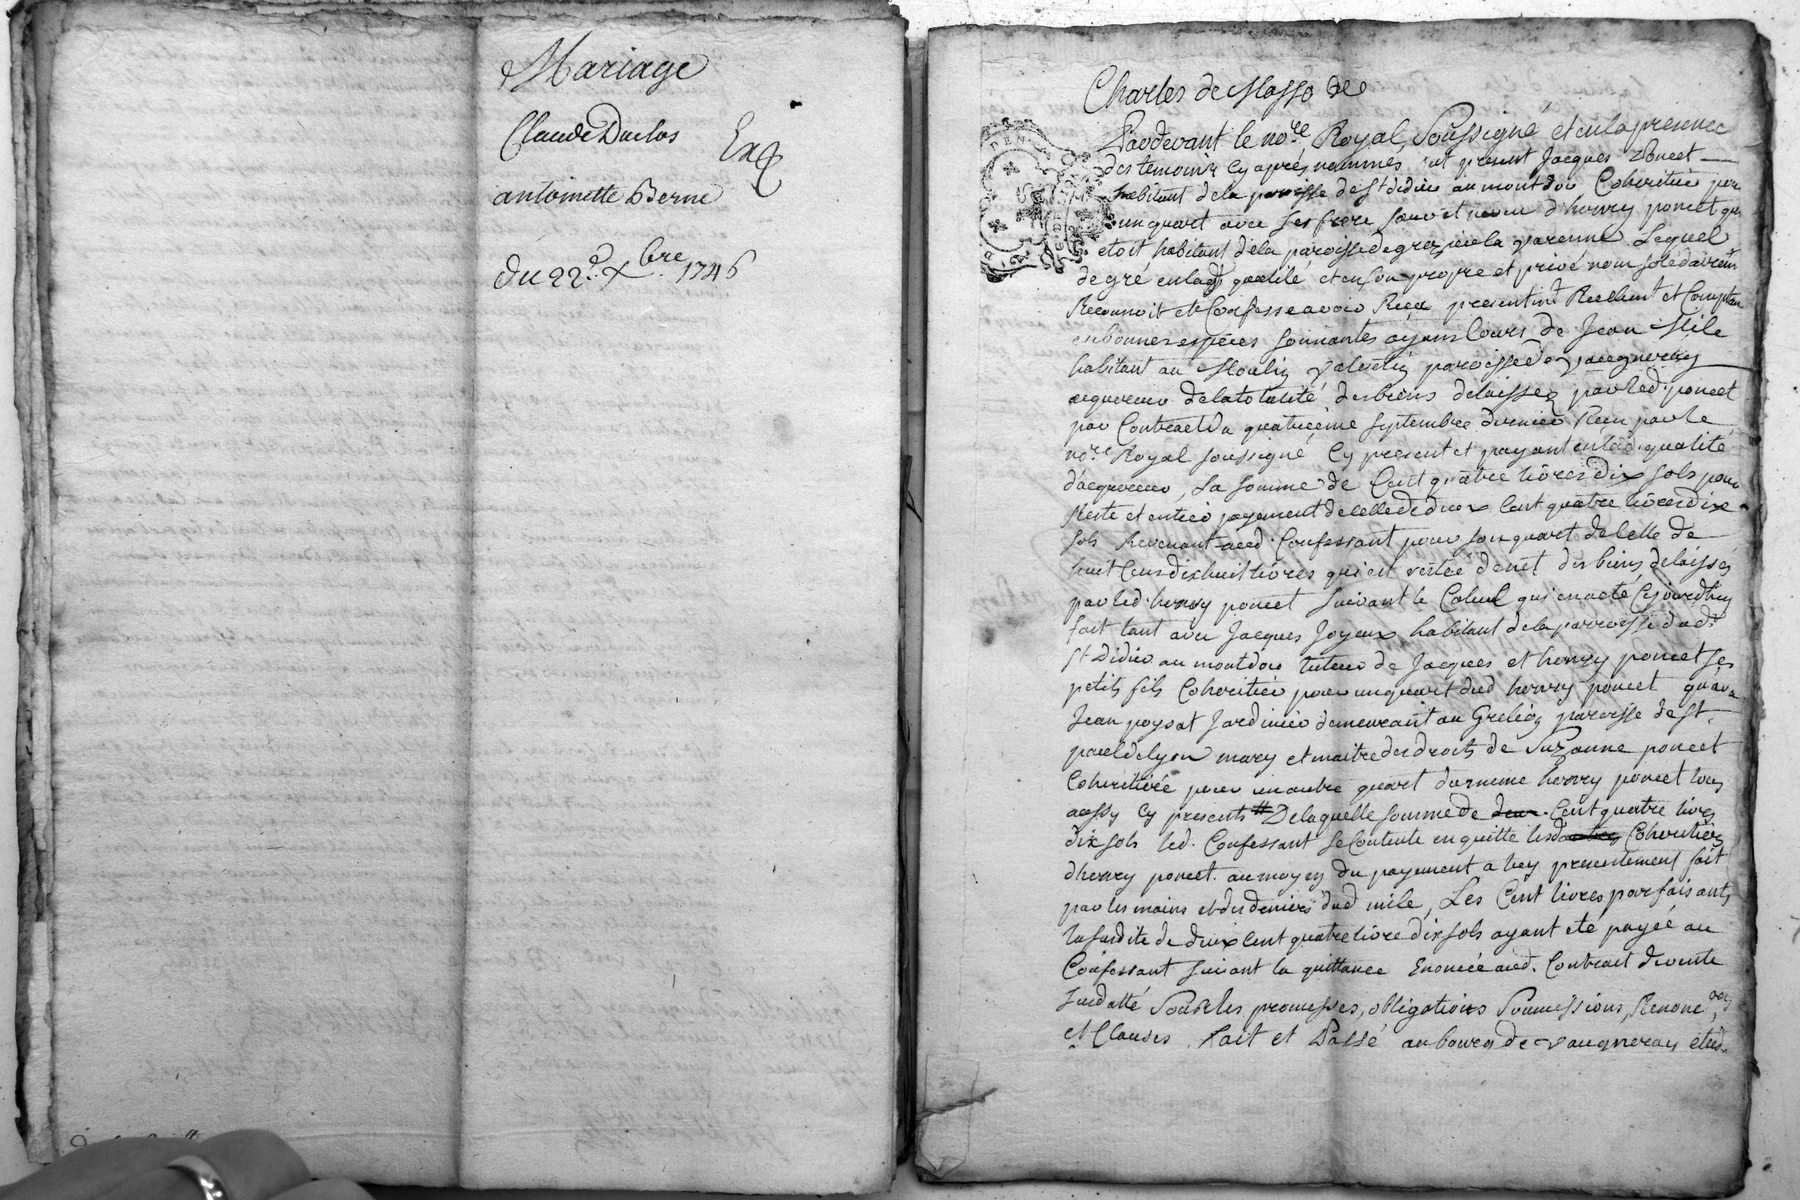 Mariage
Claude Duclos
Exp
antoinette Berne
Du 22.e Xbre 1746
Charles de Masso &c
Pardevant le nore. Royal, Soussigné et en la presence
des temoins Cy après nommés, fut present Jacques Poncet
habitant de la paroisse de St didier au montdor Coheritier pour
un quart avec Ses frere Sœur et neveu d'henry poncet qui
etoit habitant de la paroisse de grezieu la varenne Lequel
de gré en lad. qualité et en son propre et privé nom solidairemt
Reconnoit et Confesse avoir Reçu presentemt Reellemt et Comptant
en bonnes especes Sonnantes ayant Cours de Jean Mile
habitant au Moulin paroisse de vaugneray
acquereur de la totalité des biens delaissez par led. poncet
par Contract du quatrieme Septembre dernier Reçu par le
nore Royal soussigné Cy present et payant en lad. qualité
d'acquereur, La Somme de Cent quatre livres dix sols pour
Reste et entier payement de Celle de deux Cent quatre livres dix
sols Revenant aud. Confessant pour son quart de Celle de
huit Cens dix huit livres qui est restée de net des biens delaissés
par led. henry poncet suivant le Calcul qui en a eté Cejourdhuy
fait tant avec Jacques Joyeux habitant de la parroisse dud.
St Didier au montdor tuteur de Jacques et henry poncet Ses
petits fils Coheritier pour un quart dud henry poncet qu'avec
Jean poysat Jardinier demeurant au paroisse de St.
paul de lyon mary et maitre des droits de Suzanne poncet
Coheritiere pour un autre quart du meme henry poncet tous
aussy Cy presents # De laquelle somme de deux Cent quatre livres
dix sols led. Confessant Se Contente en quitte lesd Coheritiers
d'henry poncet. au moyen du payement a luy presentement fait
par les mains et des deniers dud mile, Les Cent livres parfaisants
la susdite de deux Cent quatre livre dix sols ayant eté payée au
Confessant suivant la quittance Enoncée aud. Contract de vente
Susdatté Sous les promesses, obligations Soumissions, Renonc.ons
et Clauses. Fait et Passé au bourg de vaugneray etud.